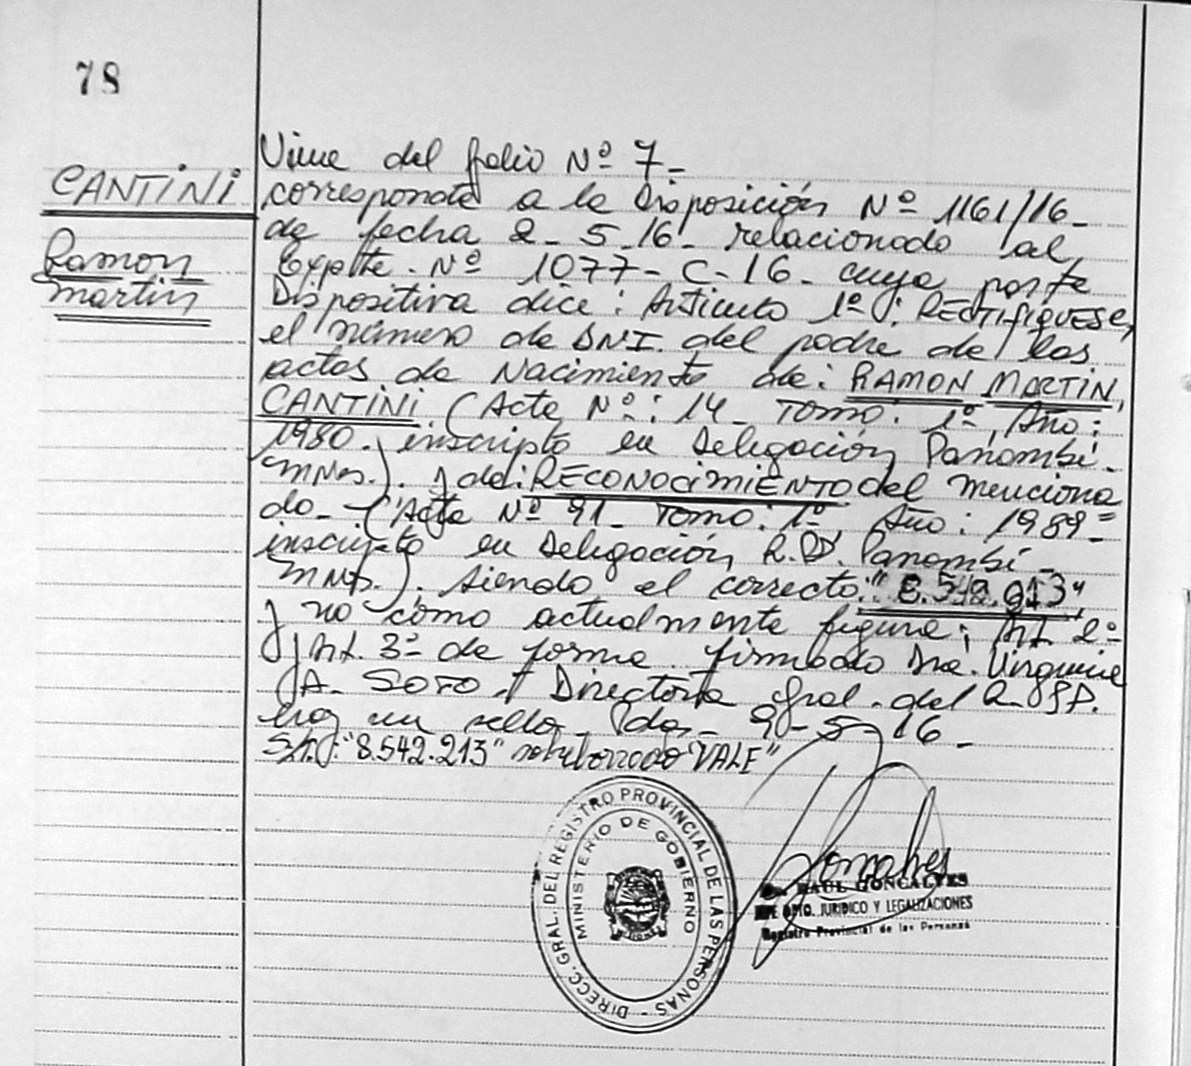 78
CANTINI
Ramon
Martin
Viene del folio Nº 7-
corresponde a la Disposición Nº 1161/16-
de fecha 2-5-16- relacionado al
Expte. Nº 1077-C-16- cuya parte
Dispositiva dice: Artículo 1º: RECTIFIQUESE,
el número de DNI. del padre de las
actas de Nacimiento de: RAMON MARTIN
CANTINI (Acta Nº: 14- Tomo: 1º, Año:
1980- inscripto en Delegación Panambí-
Mnes.). y de: RECONOCIMIENTO del menciona
do- (Acta Nº 91- Tomo: 1º, Año: 1989-
inscripto en Delegación, R.P. Panambí-
Mnes.). siendo el correcto: "8.542.213",
y no como actualmente figura; Art. 2º
y Art. 3º de forma. firmado Dra. Virginia
A. SOTO. Directora Gral. del R.P.P.
hay un sello. Pdas- 9-5-16-
"8.542.213" sobreborrado "VALE"
DIRECC. GRAL. DEL REGISTRO PROVINCIAL DE LAS PERSONAS -
MINISTERIO DE GOBIERNO
RAUL GONCALVES
DPTO. JURIDICO Y LEGALIZACIONES
Registro Provincial de las Personas